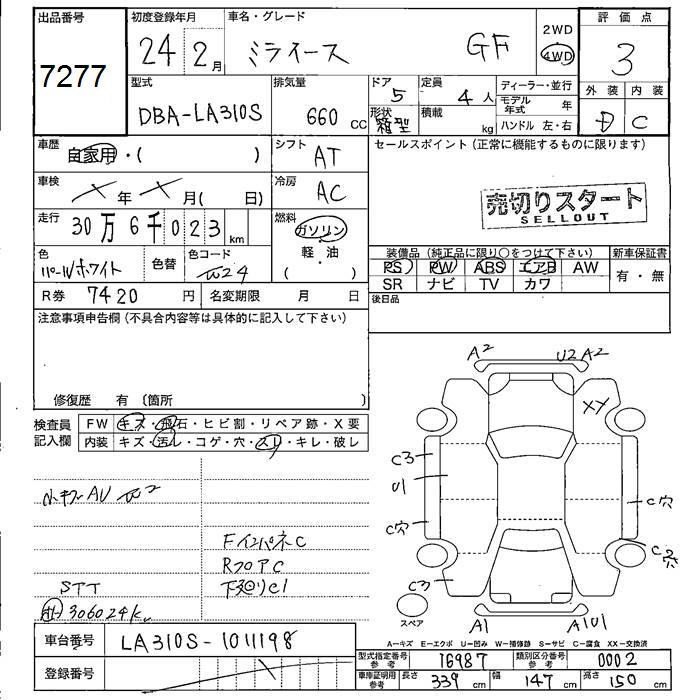 出品番号
7277
初度登録年月
24年2月
車名・グレード
ミライース GF
2WD
4WD
評価点
3
外装 内装
D C
型式
DBA-LA310S
排気量
660 cc
ドア
5
形状
箱型
定員
4人
積載
kg
ディーラー・並行
モデル年式 年
ハンドル 左・右
車歴
自家用・( )
シフト
AT
車検
X年X月( 日)
冷房
AC
走行
30万6千023 km
燃料
ガソリン
軽・油
( )
色
パールホワイト
色替
色コード
W24
R券 7420円
名変期限 月 日
セールスポイント(正常に機能するものに限ります)
売切りスタート
SELLOUT
装備品(純正品に限り○をつけて下さい)
PS PW ABS エアB AW
SR ナビ TV カワ
新車保証書
有・無
後日品
注意事項申告欄(不具合内容等は具体的に記入して下さい)
修復歴 有 〔箇所 〕
検査員
記入欄
FW キズ・飛石・ヒビ割・リペア跡・X要
内装 キズ・汚レ・コゲ・穴・スレ・キレ・破レ
小キズAU W2
FインパネC
RフロアC
下廻りC1
STT
306024k
A2
U2A2
XX
C3
U1
C穴
C穴
C穴
C3
A1
A1U1
スペア
A-キズ E-エクボ U-凹み W-補修跡 S-サビ C-腐食 XX-交換済
車台番号 LA310S-1011198
登録番号
型式指定番号 参考 16987
類別区分番号 参考 0002
車庫証明用 参考 長さ 339 cm 幅 147 cm 高さ 150 cm